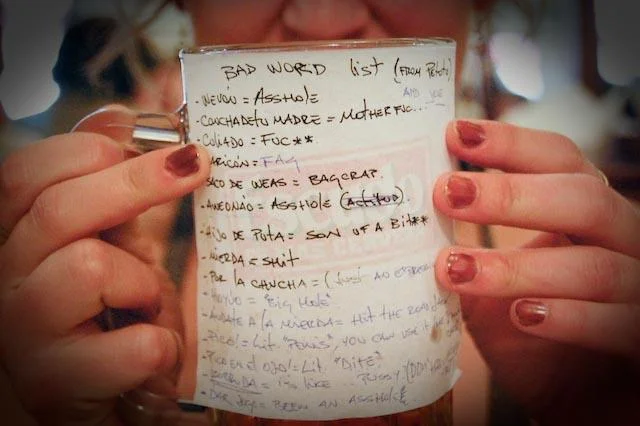 BAD WORD list (FROM Pototo)
AND JOE
- WEVÓN = ASSHOLE
- CONCHADETU MADRE = MOTHERFUC...
- CULIADO = FUC**
ARICÓN = FAG
SACO DE WEAS = BAGCRAP.
- AWEONAO = ASSHOLE (Actitud).
- HIJO DE PUTA = SON OF A Bit**
- MIERDA = SHIT
- POR LA CHUCHA = (JUST AN EXPRESSION
= "BIG HOLE"
- ANDATE A LA MIERDA = HIT THE ROAD
- PICO! = Lit. "PENIS", YOU CAN USE IT
- PICO EN EL OJO! = Lit. "DITE"
= it's LIKE ... PUSSY
- DAR = BEEN AN ASSHOLE